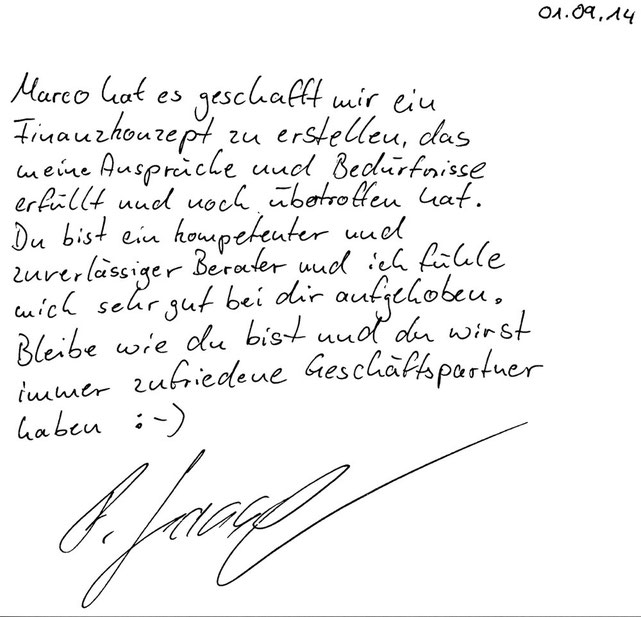 01.09.14
Marco hat es geschafft mir ein
Finanzkonzept zu erstellen, das
meine Ansprüche und Bedürfnisse
erfüllt und noch übetroffen hat.
Du bist ein kompetenter und
zuverlässiger Berater und ich fühle
mich sehr gut bei dir aufgehoben.
Bleibe wie du bist und du wirst
immer zufriedene Geschäftspartner
haben :-)